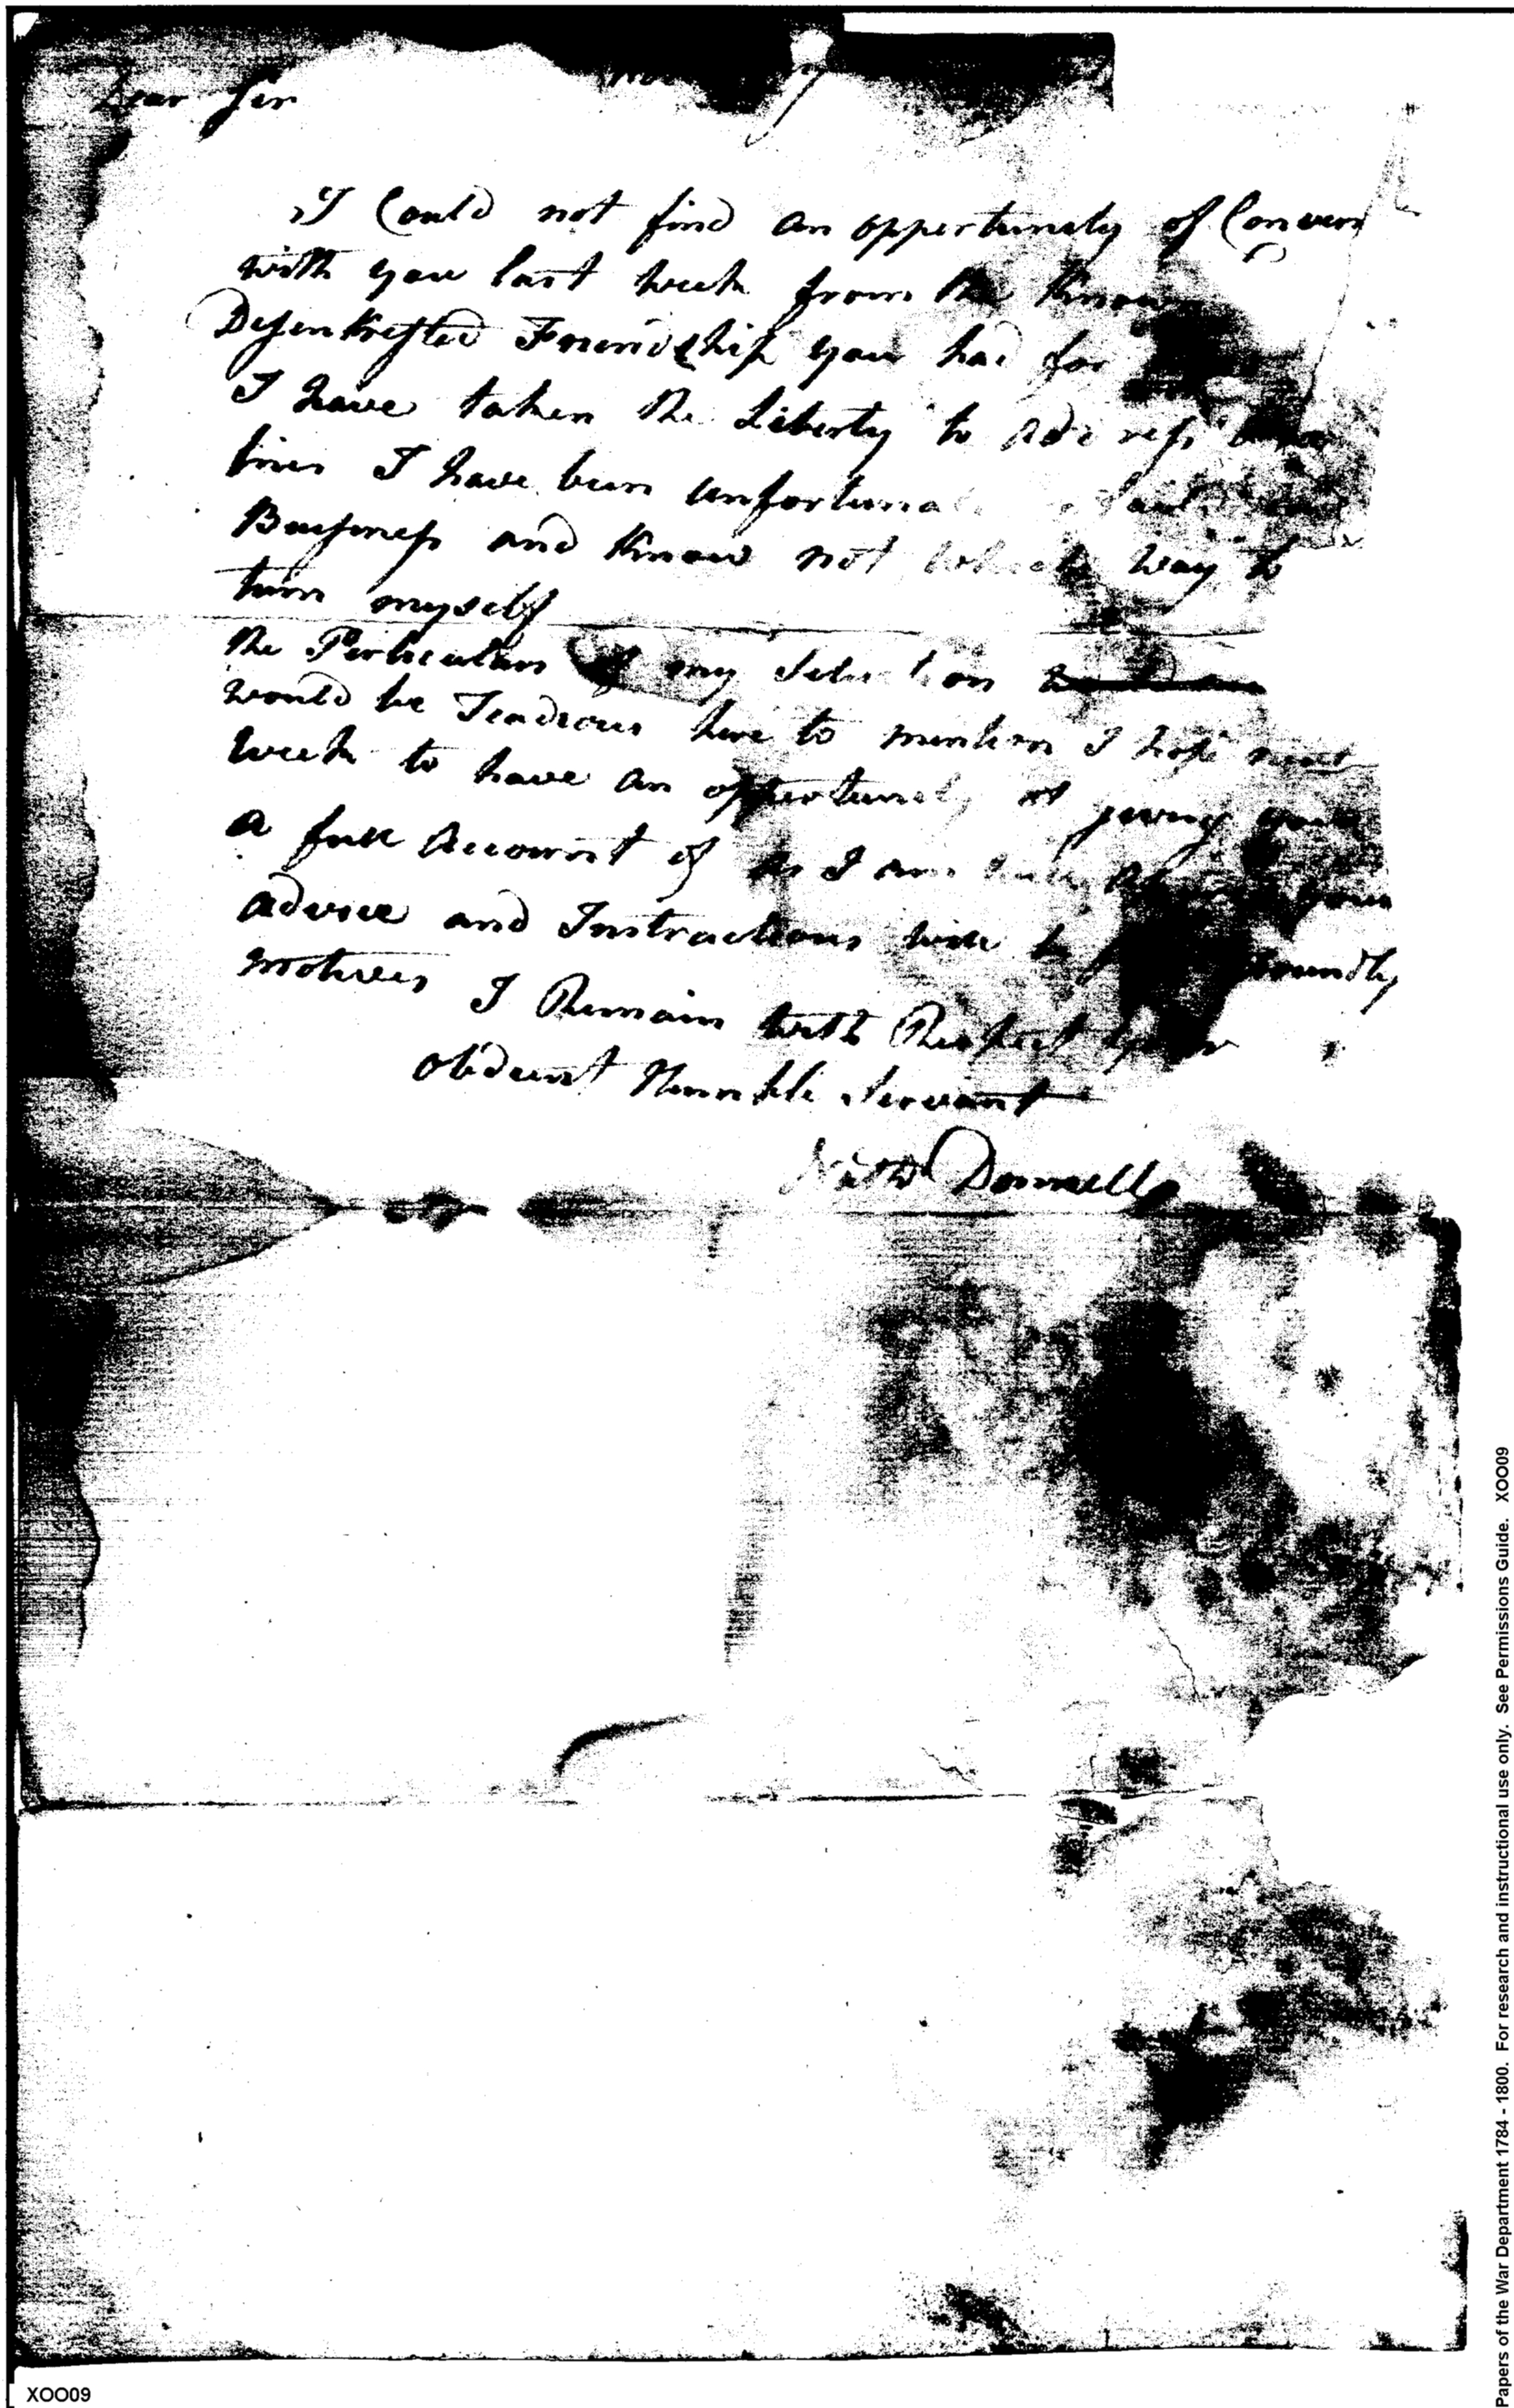 Dear Sir
I Could not find an oppertunity of Convers
with you last week from the Known
Desenkrested Friendship you had for
I have taken the Liberty to address
lines I have been unfortunate
Business and Know not which way to
turn myself
the Perticulars of my Setuation
would be Teadious here to mention I hope next
week to have an oppertunity of giveing you
a full Account of as I am
advice and Instructions will be
motives I Remain with Respect your
Obdeent Humble Servant
Nathl Donnell
XOO09
Papers of the War Department 1784 - 1800. For research and instructional use only. See Permissions Guide. XOO09